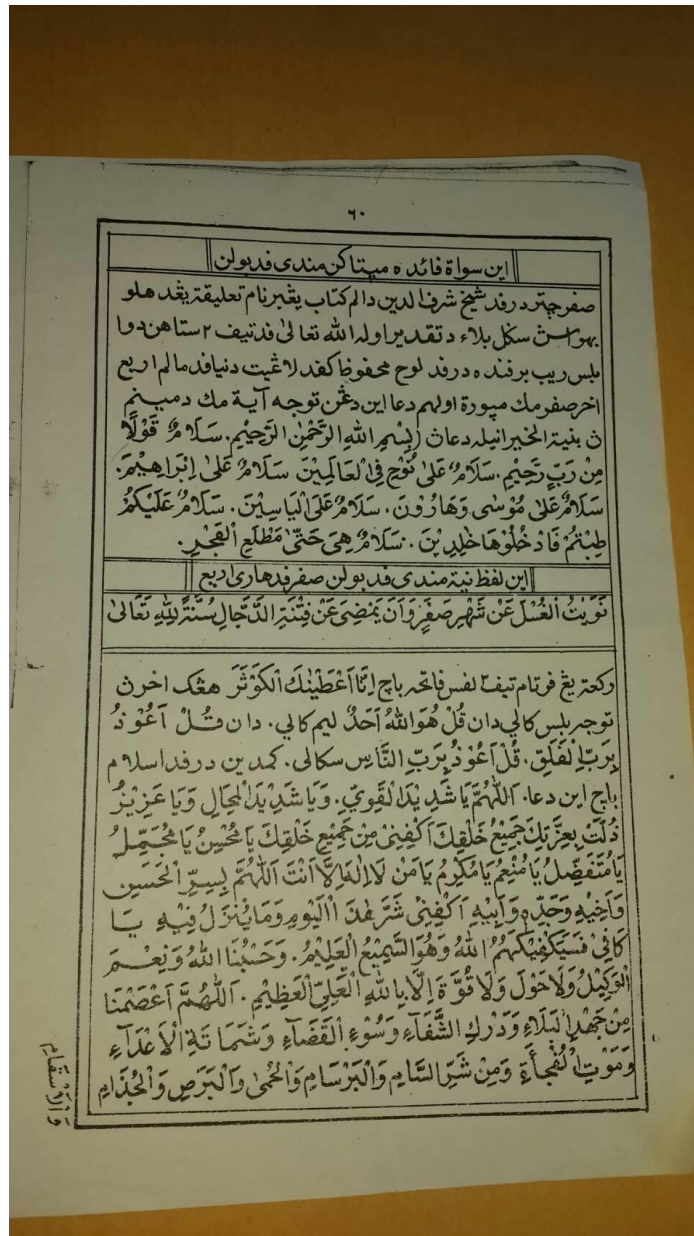 ٦٠
اين سواة فائده ميتاكن مندى فدبولن
صفر چتر درفد شيخ شرف الدين دالم كتاب يڠبرنام تعليقة يڠد هلو
بهواسڽ سكل بلاء دتقديراوله الله تعالى فد تيف ٢ ستاهن دوا
بلس ريب برفنده درفد لوح محفوظ كفد لاڠيت دنيا فد مالم اربع
اخر صفر مك ميورة اولهم دعا اين دڠن توجه آية مك دمينم
ڽ بنية الخير انيله دعاڽ (بِسْمِ اللهِ الرَّحْمٰنِ الرَّحِيْمِ. سَلَامٌ قَوْلًا
مِنْ رَبٍّ رَّحِيْمٍ. سَلَامٌ عَلٰى نُوْحٍ فِي الْعَالَمِيْنَ. سَلَامٌ عَلٰى اِبْرَاهِيْمَ.
سَلَامٌ عَلٰى مُوْسٰى وَهَارُوْنَ. سَلَامٌ عَلٰى اِلْيَاسِيْنَ. سَلَامٌ عَلَيْكُمْ
طِبْتُمْ فَادْخُلُوْهَا خٰلِدِيْنَ. سَلَامٌ هِيَ حَتّٰى مَطْلَعِ الْفَجْرِ.
اين لفظ نية مندى فد بولن صفر فد هارى اربع
نَوَيْتُ الْغُسْلَ عَنْ شَهْرِ صَفَرٍ وَاَنْ يَمْضِىَ عَنْ فِتْنَةِ الدَّجَّالِ سُنَّةً لِلّٰهِ تَعَالٰى
ركعتيڠ فرتام تيف٢ لفس فاتحه باچ اِنَّا اَعْطَيْنٰكَ الْكَوْثَرَ هڠك اخرڽ
توجه بلس كالي دان قُلْ هُوَ اللهُ اَحَدٌ ليم كالي. دان قُلْ اَعُوْذُ
بِرَبِّ الْفَلَقِ. قُلْ اَعُوْذُ بِرَبِّ النَّاسِ سكالى. كمدين درفد اسلام
باچ اين دعا. اَللّٰهُمَّ يَا شَدِيْدَ الْقَوِيِّ. وَيَا شَدِيْدَ الْمِحَالِ وَيَا عَزِيْزُ
ذُلَّتْ بِعِزَّتِكَ جَمِيْعُ خَلْقِكَ اَكْفِنِيْ مِنْ جَمِيْعِ خَلْقِكَ يَا مُحْسِنُ يَا مُجَمِّلُ
يَا مُتَفَضِّلُ يَا مُنْعِمُ يَا مُكْرِمُ يَا مَنْ لَا اِلٰهَ اِلَّا اَنْتَ اَللّٰهُمَّ بِسِرِّ الْحَسَنِ
وَاَخِيْهِ وَجَدِّهِ وَاَبِيْهِ اَكْفِنِيْ شَرَّ هٰذَا الْيَوْمِ وَمَا يَنْزِلُ فِيْهِ يَا
كَافِيْ فَسَيَكْفِيْكَهُمُ اللهُ وَهُوَ السَّمِيْعُ الْعَلِيْمُ. وَحَسْبُنَا اللهُ وَنِعْمَ
الْوَكِيْلُ وَلَا حَوْلَ وَلَا قُوَّةَ اِلَّا بِاللهِ الْعَلِيِّ الْعَظِيْمِ. اَللّٰهُمَّ اَعْصِمْنَا
مِنْ جَهْدِ الْبَلَاءِ وَدَرَكِ الشَّفَآءِ وَسُوْءِ الْقَضَآءِ وَشَمَاتَةِ الْاَعْدَآءِ
وَمَوْتِ الْفُجَأَةِ وَمِنْ شَرِّ السَّامِ وَالْبَرْسَامِ وَالْحُمٰى وَالْبَرَصِ وَالْجُذَامِ
وَالْاَسْقَامِ